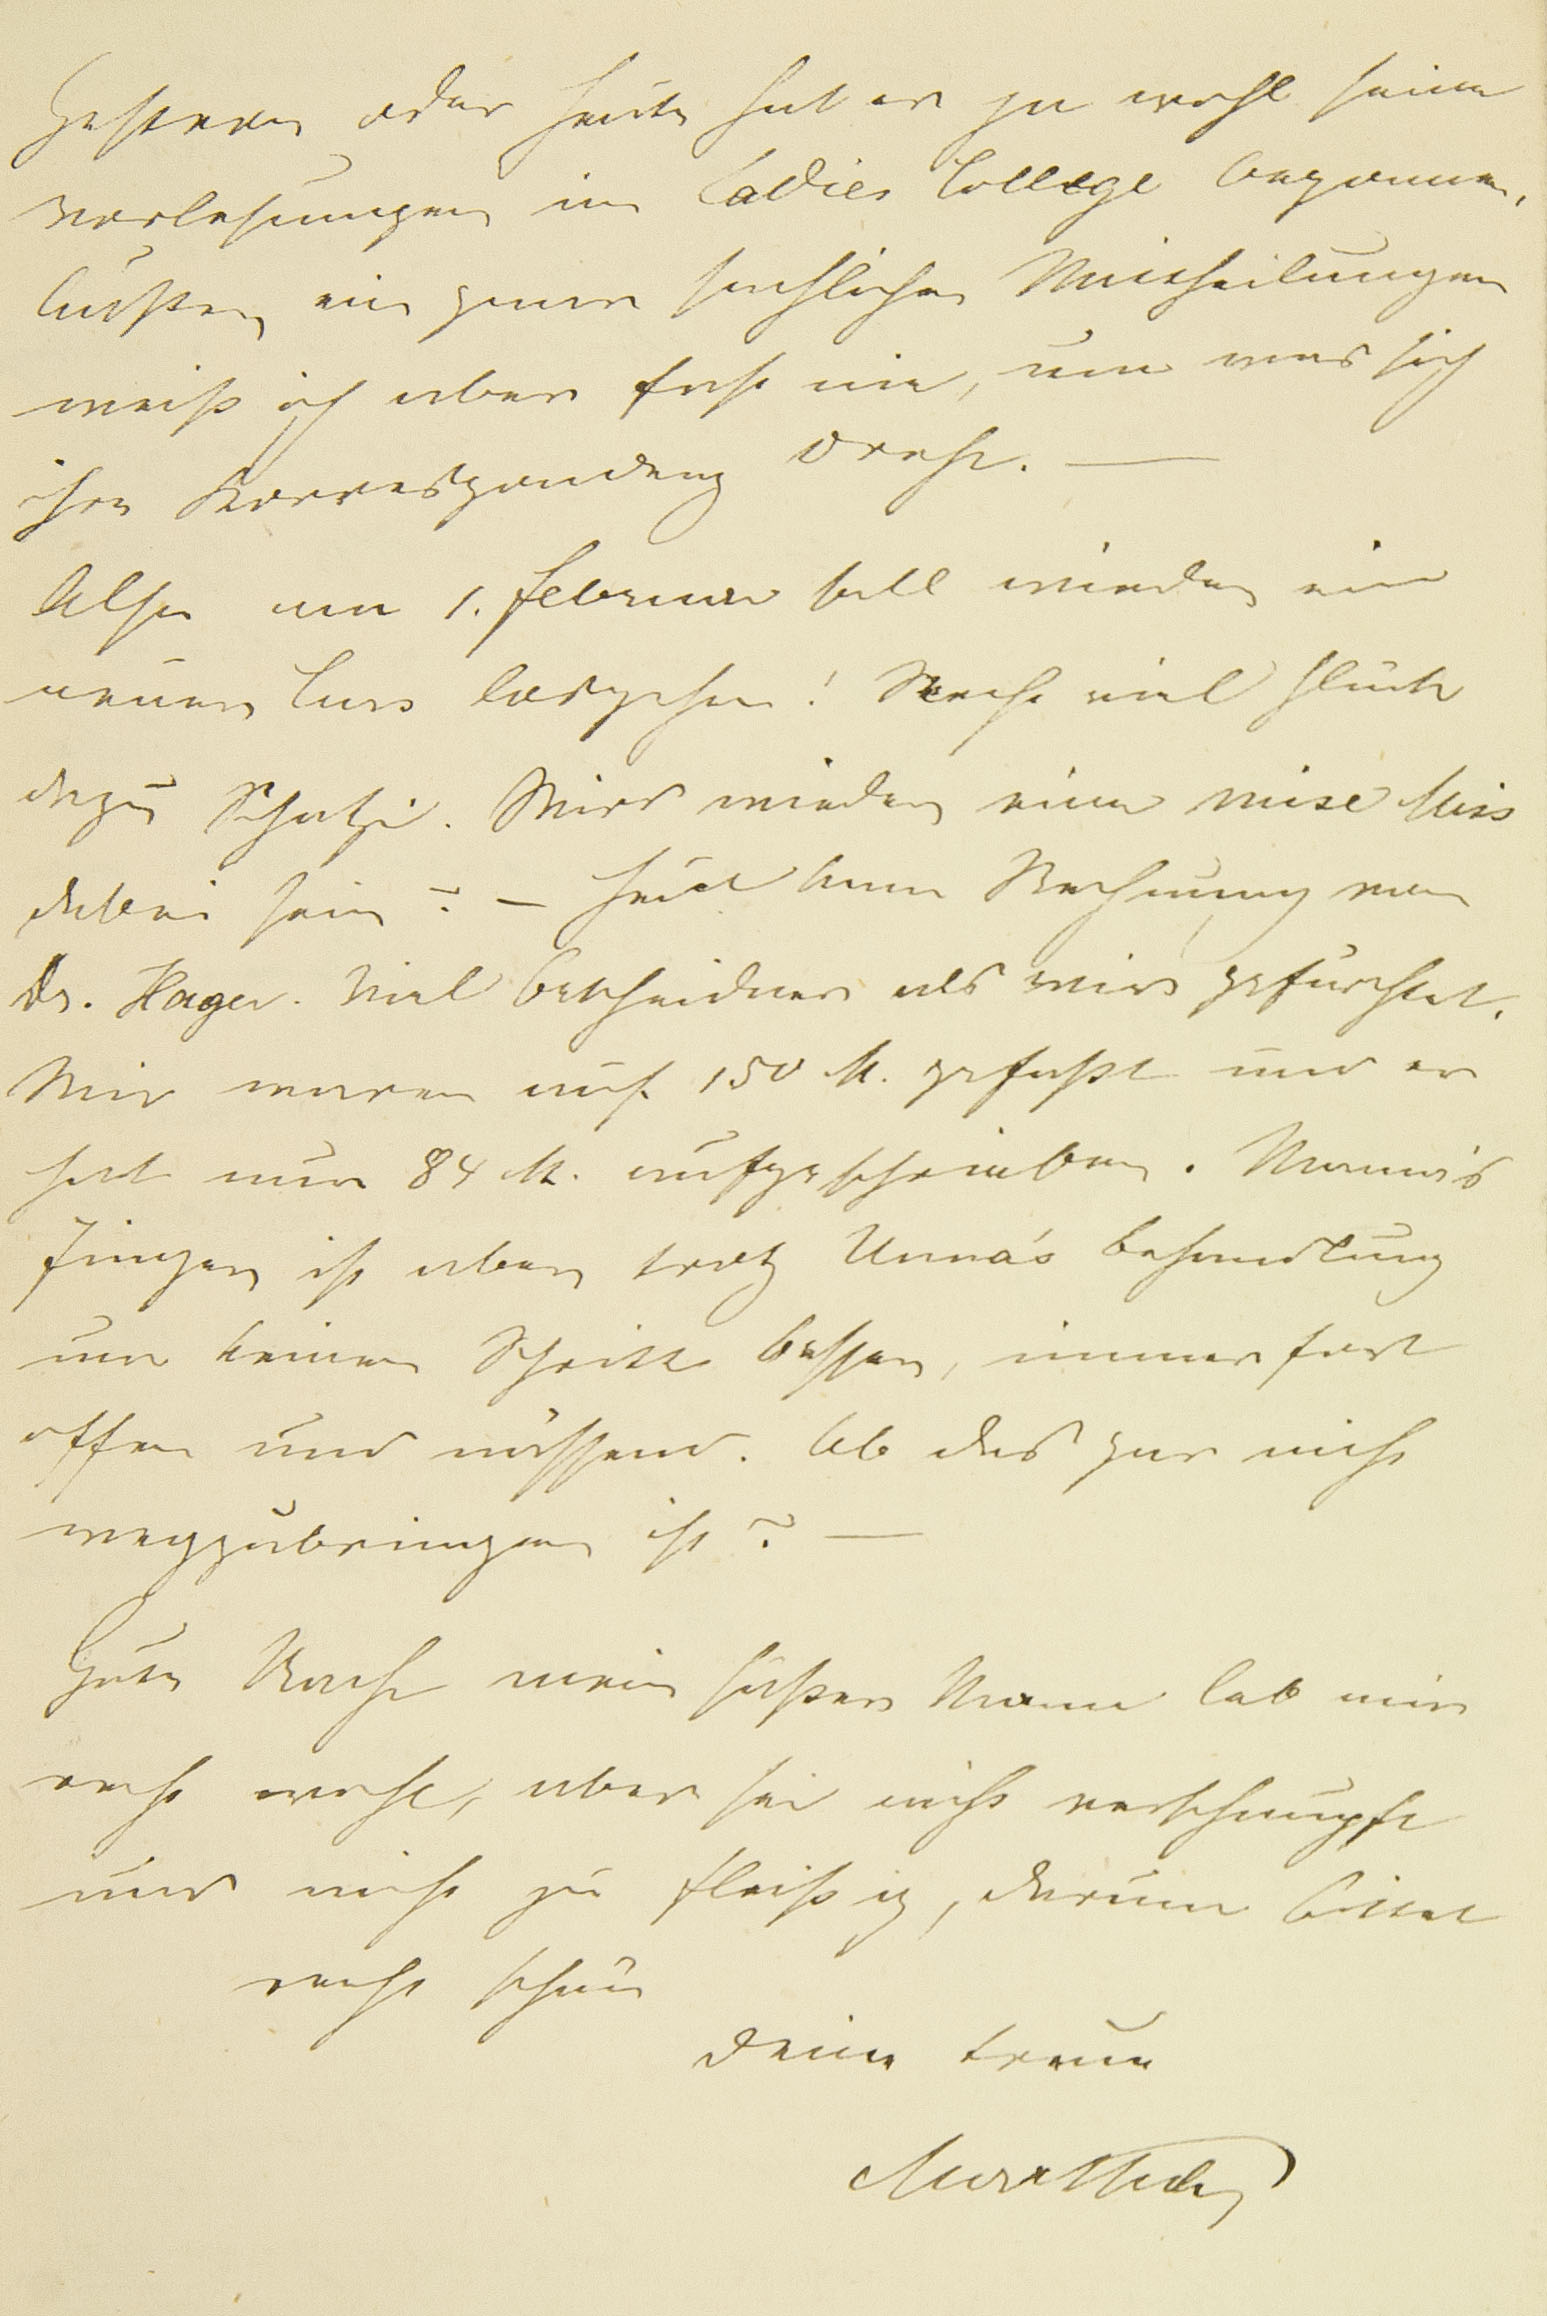 Gestern oder heute hat er ja wohl seine
Vorlesungen im Ladies College begonnen,
außer ein paar sachlichen Mittheilungen
weiß ich aber fast nie, um was sich
ihre Korrespondenz dreht. —
Also am 1. Februar soll wieder ein
neuer Curs losgehen! Recht viel Glück
dazu Schatzi. Wird wieder eine nice Miss
dabei sein? — Heut kam Rechnung von
Dr. Hager. Viel bescheidner als wir's gefürchtet.
Wir waren auf 150 M. gefaßt und er
hat nur 84 M. aufgeschrieben. Mama's
Finger ist aber trotz Unna's Behandlung
um keinen Schritt besser, immerfort
offen und nässend. Ob das gar nicht
wegzubringen ist? —
Gute Nacht mein süßer Mann leb mir
recht wohl, aber sei nicht verschnupft
und nicht zu fleißig, darum bittet
recht schön
Deine treue